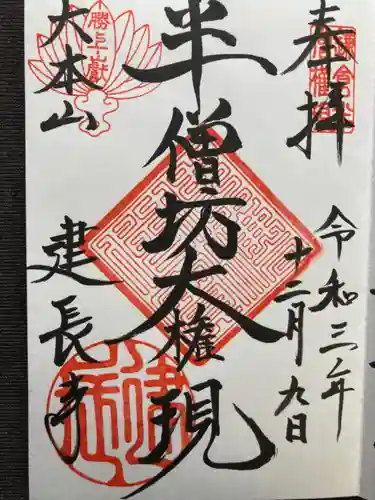 奉拝
令和三年
十二月九日
半僧坊大権現
勝上嶽
大本山
建長寺